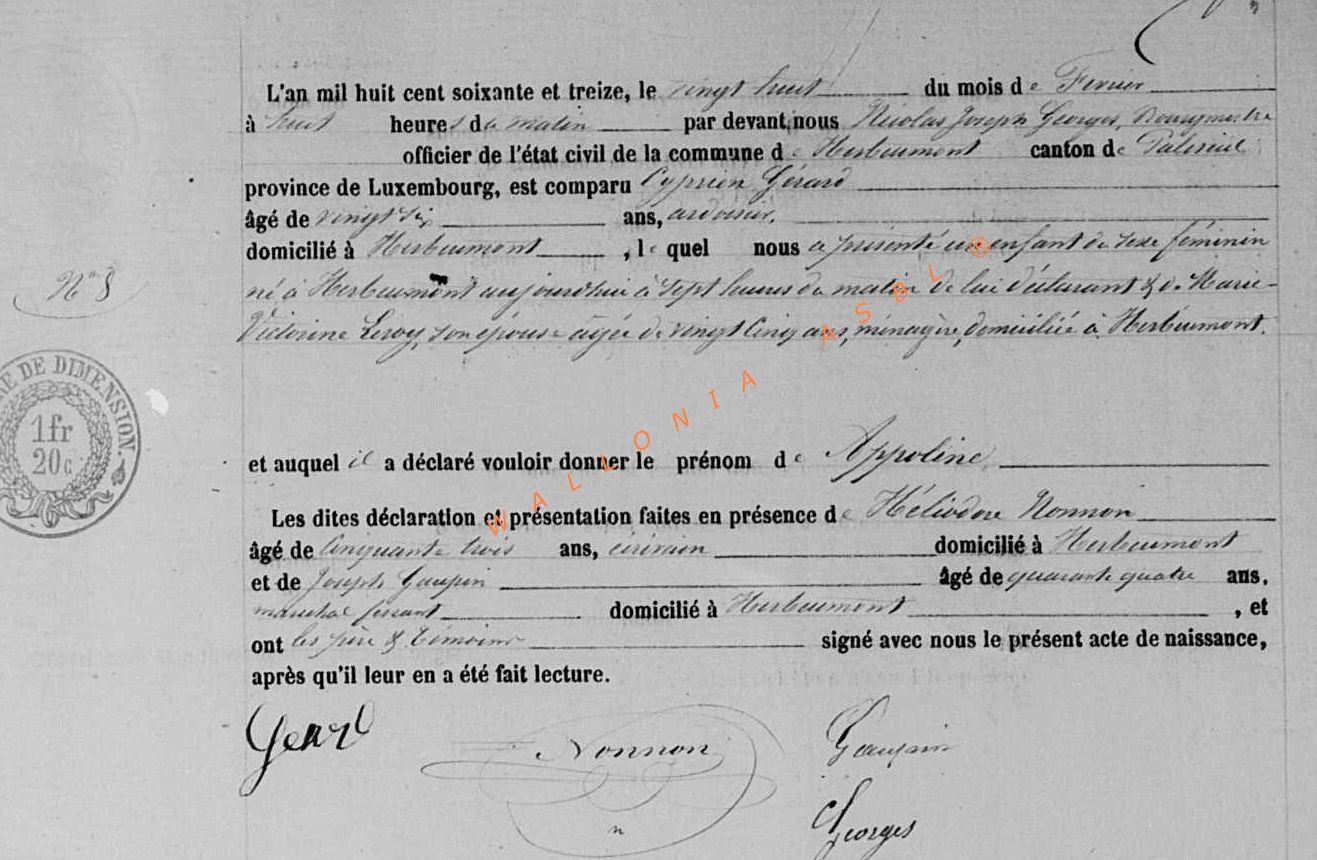 L'an mil huit cent soixante et treize, le vingt huit du mois de Fevrier
à huit heures du matin par devant nous Nicolas Joseph Georges, Bourgmestre
officier de l'état civil de la commune de Herbeumont canton de Paliseul
province de Luxembourg, est comparu Cyprien Gérard
âgé de vingt six ans, ardoisier,
domicilié à Herbeumont, le quel nous a présenté un enfant du sexe féminin
N° 8
né à Herbeumont aujourd'hui à sept heures du matin de lui déclarant & de Marie-
Victorine Leroy, son épouse agée de vingt cinq ans, ménagère, domiciliée à Herbeumont.
RE DE DIMENSION.
1fr
20c
WALLONIA ASBL ®
et auquel il a déclaré vouloir donner le prénom de Appoline
Les dites déclaration et présentation faites en présence de Héliodore Nonnon
âgé de cinquante trois ans, écrivain domicilié à Herbeumont
et de Joseph Gaupin âgé de quarante quatre ans,
maréchal ferrant domicilié à Herbeumont, et
ont les père & témoins signé avec nous le présent acte de naissance,
après qu'il leur en a été fait lecture.
Gerard Nonnon Gaupin
Georges